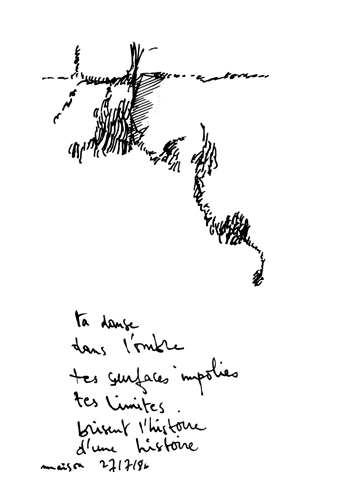 ta danse
dans l'ombre
tes surfaces impolies
tes limites.
brisent l'histoire
d'une histoire
maison 27/7/86